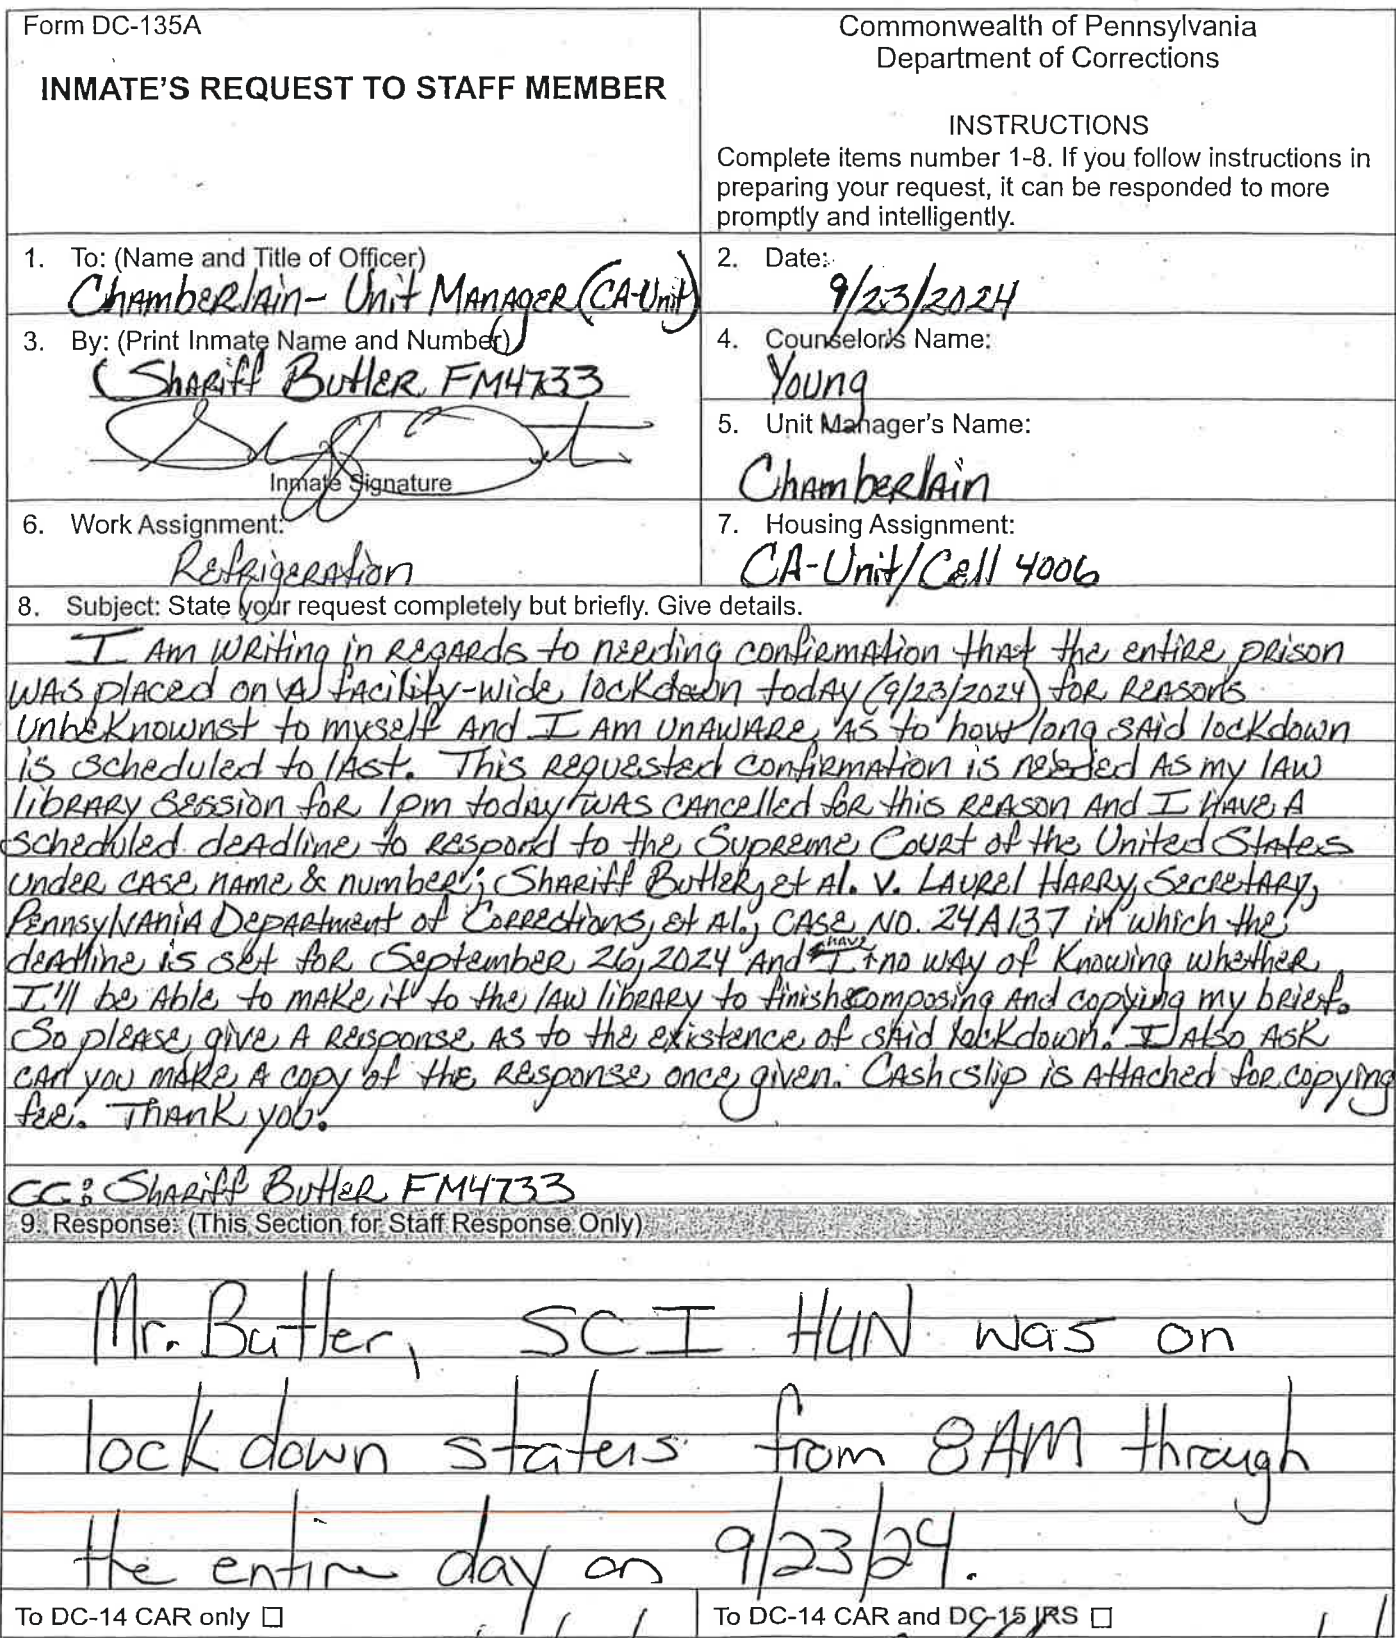 Form DC-135A
INMATE'S REQUEST TO STAFF MEMBER
Commonwealth of Pennsylvania
Department of Corrections
INSTRUCTIONS
Complete items number 1-8. If you follow instructions in
preparing your request, it can be responded to more
promptly and intelligently.
1. To: (Name and Title of Officer)
Chamberlain- Unit Manager (CA-Unit)
2. Date:
9/23/2024
3. By: (Print Inmate Name and Number)
Shariff Butler FM4733
Inmate Signature
4. Counselor's Name:
Young
5. Unit Manager's Name:
Chamberlain
6. Work Assignment:
Refrigeration
7. Housing Assignment:
CA-Unit/Cell 4006
8. Subject: State your request completely but briefly. Give details.
I Am writing in regards to needing confirmation that the entire prison
was placed on a facility-wide lockdown today (9/23/2024) for reasons
unbeknownst to myself and I am unaware as to how long said lockdown
is scheduled to last. This requested confirmation is needed as my law
library session for 1pm today was cancelled for this reason and I have a
scheduled deadline to respond to the Supreme Court of the United States
under case name & number; Shariff Butler, et al. v. Laurel Harry, Secretary,
Pennsylvania Department of Corrections, et al., Case No. 24A137 in which the
deadline is set for September 26, 2024 and I have no way of knowing whether
I'll be able to make it to the law library to finish composing and copying my brief.
So please give a response as to the existence of said lockdown. I also ask
can you make a copy of the response once given. Cash slip is attached for copying
fee. Thank you.
CC: Shariff Butler FM4733
9. Response: (This Section for Staff Response Only)
Mr. Butler, SCI HUN was on
lockdown status from 8AM through
the entire day on 9/23/24.
To DC-14 CAR only ☐
To DC-14 CAR and DC-15 IRS ☐